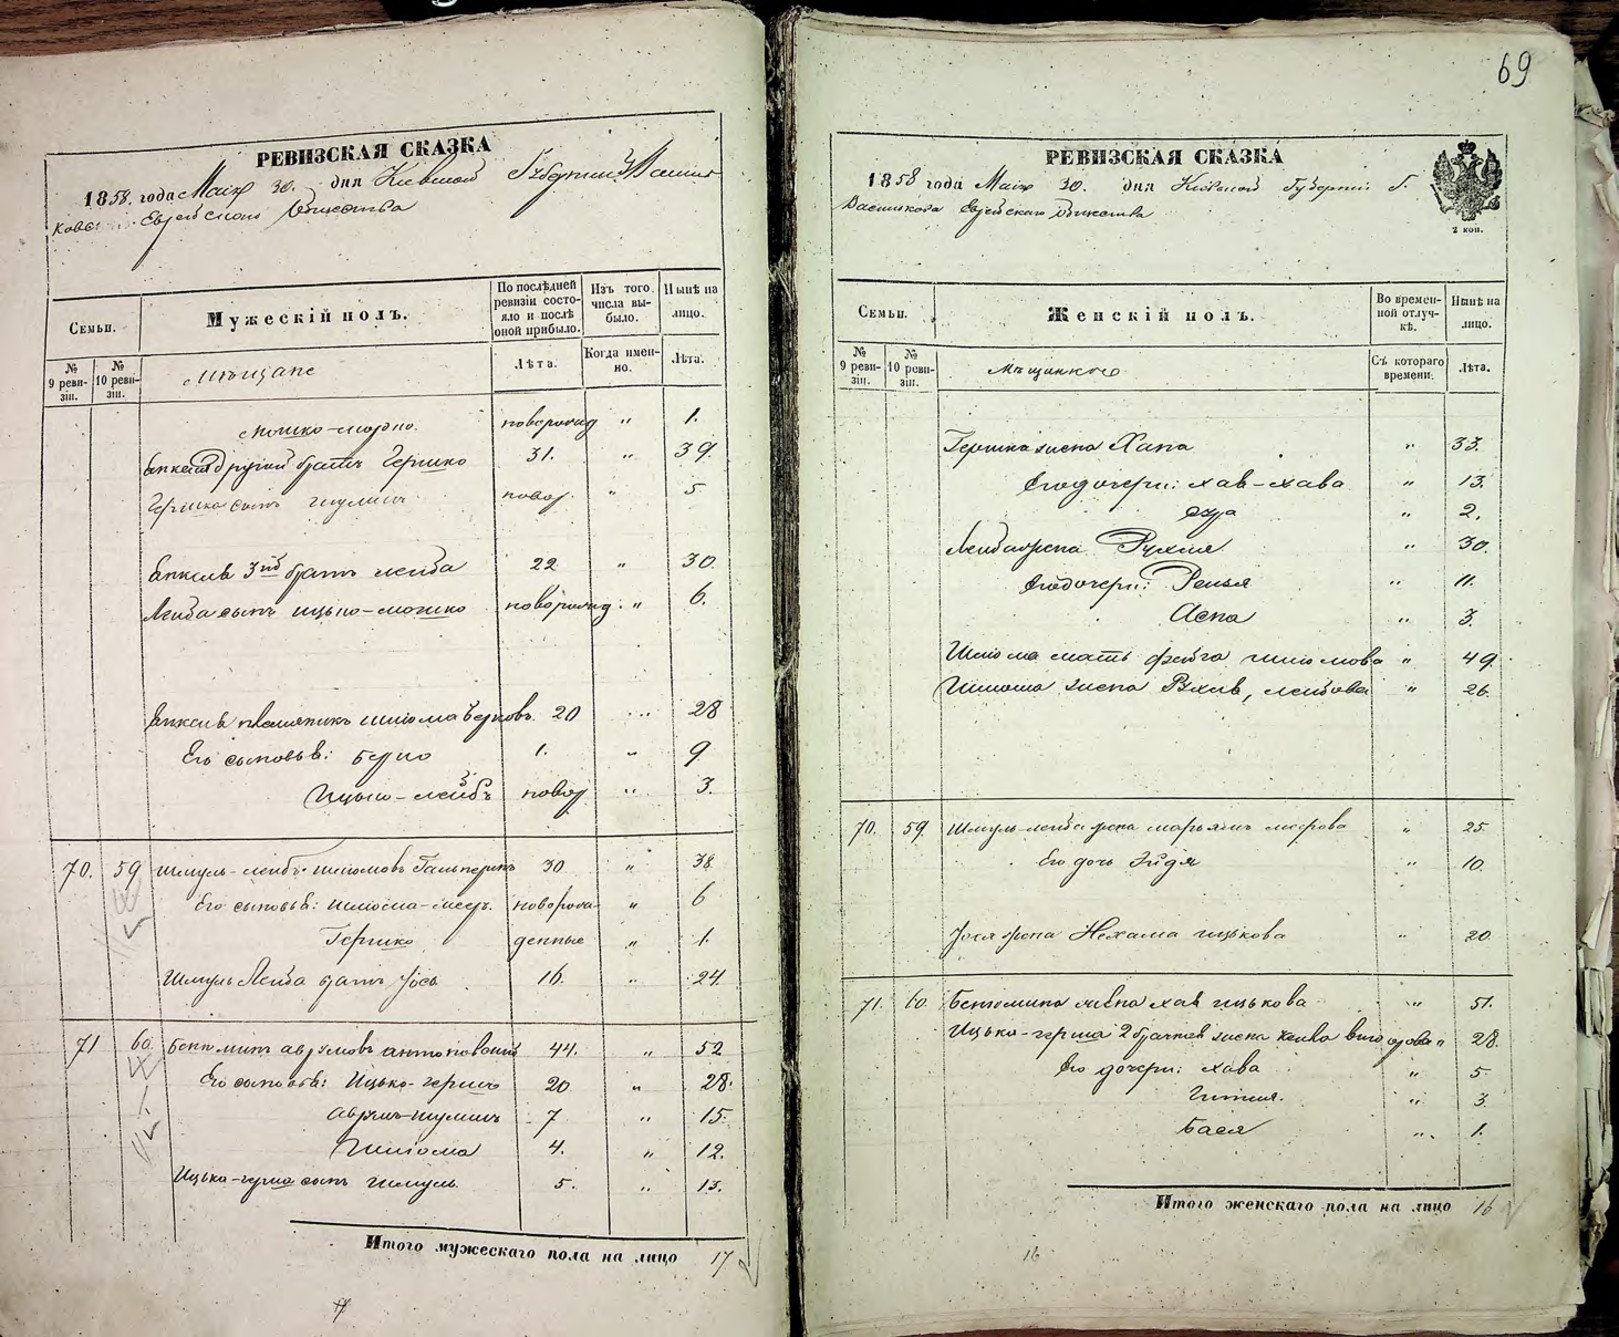 69
РЕВИЗСКАЯ СКАЗКА
1858. года Маія 30. дня Кіевской Губерніи
Еврейскаго Общества
Семьи.
Мужескій полъ.
По послѣдней ревизіи состояло и послѣ оной прибыло.
Изъ того числа выбыло.
Нынѣ на лицо.
№ 9 ревизіи.
№ 10 ревизіи.
мѣщане
Лѣта.
Когда именно.
Лѣта.
Мошко-мордко. новорожд " 1.
другий братъ Гершко 31. " 39.
Гершка сынъ новор. " 5
3ій братъ лейба 22 " 30.
Лейба сынъ ицько-мошко новорожд. " 6.
племяникъ шліома берковъ 20 " 28
Его сыновья: берко 1. " 9
Ицько-лейбъ новор " 3.
70. 59 Шмуль-лейбъ шліомовъ Гальперинъ 30 " 38
Его сыновья: шліома-меер. новорож- " 6
Гершко денные " 1.
Шмуль Лейба братъ Іось 16. " 24.
71 60. аврумовъ 44. " 52
Его сыновья: Ицько-герш 20 " 28.
аврумъ-шулимъ 7 " 15.
Шліома 4. " 12.
Ицька-герша сынъ шмуль 5. " 13.
Итого мужескаго пола на лицо 17
17
РЕВИЗСКАЯ СКАЗКА
1858 года Маія 30. дня Кіевской Губерніи Г.
Еврейскаго Общества
2 коп.
Семьи.
Женскій полъ.
Во временной отлучкѣ.
Нынѣ на лицо.
№ 9 ревизіи.
№ 10 ревизіи.
Мѣщанкого
Съ котораго времени.
Лѣта.
Гершка жена Хана " 33.
Его дочери: хая-хава " 13.
" 2.
Лейба жена Рухля " 30.
Его дочери: Рейзя " 11.
Асна " 3.
Шліома мать фейга шліомова " 49.
Шліома жена Рухля, лейбова " 26.
70. 59. Шмуль-лейба жена марьямъ меерова " 25.
Его дочь Эйдя " 10.
Іося жена Нехама ицькова " 20
71. 60. жена хая ицькова " 51.
Ицько-герша 2 брачная жена " 28.
Его дочери: хава " 5.
Гитля. " 3.
Бася " 1.
Итого женскаго пола на лицо 16
16